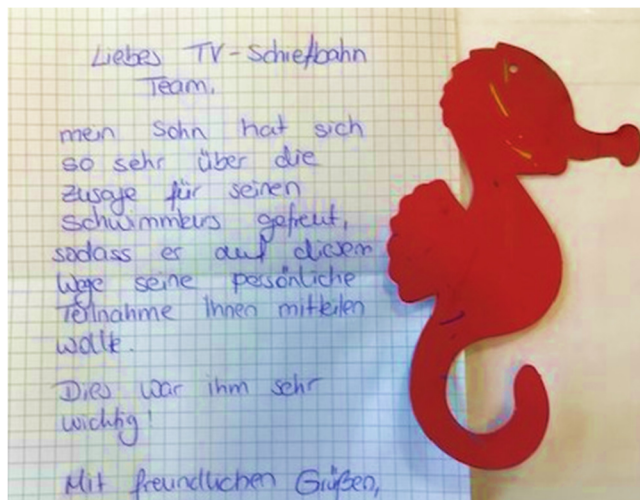 Liebes TV-Schiefbahn
Team,
mein Sohn hat sich
so sehr über die
Zusage für seinen
Schwimmkurs gefreut,
sodass er auf diesem
Wege seine persönliche
Teilnahme Ihnen mitteilen
wollte.
Dies war ihm sehr
wichtig!
Mit freundlichen Grüßen,